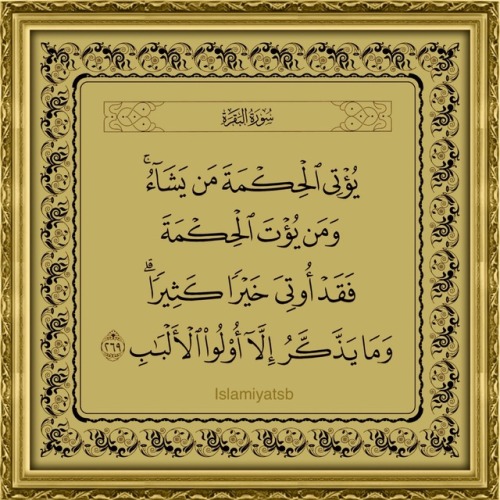 سُورَةُ البَقَرَةِ
يُؤْتِى ٱلْحِكْمَةَ مَن يَشَآءُ ۚ
وَمَن يُؤْتَ ٱلْحِكْمَةَ
فَقَدْ أُوتِىَ خَيْرًا كَثِيرًا ۗ
وَمَا يَذَّكَّرُ إِلَّآ أُو۟لُوا۟ ٱلْأَلْبَـٰبِ ٢٦٩
Islamiyatsb